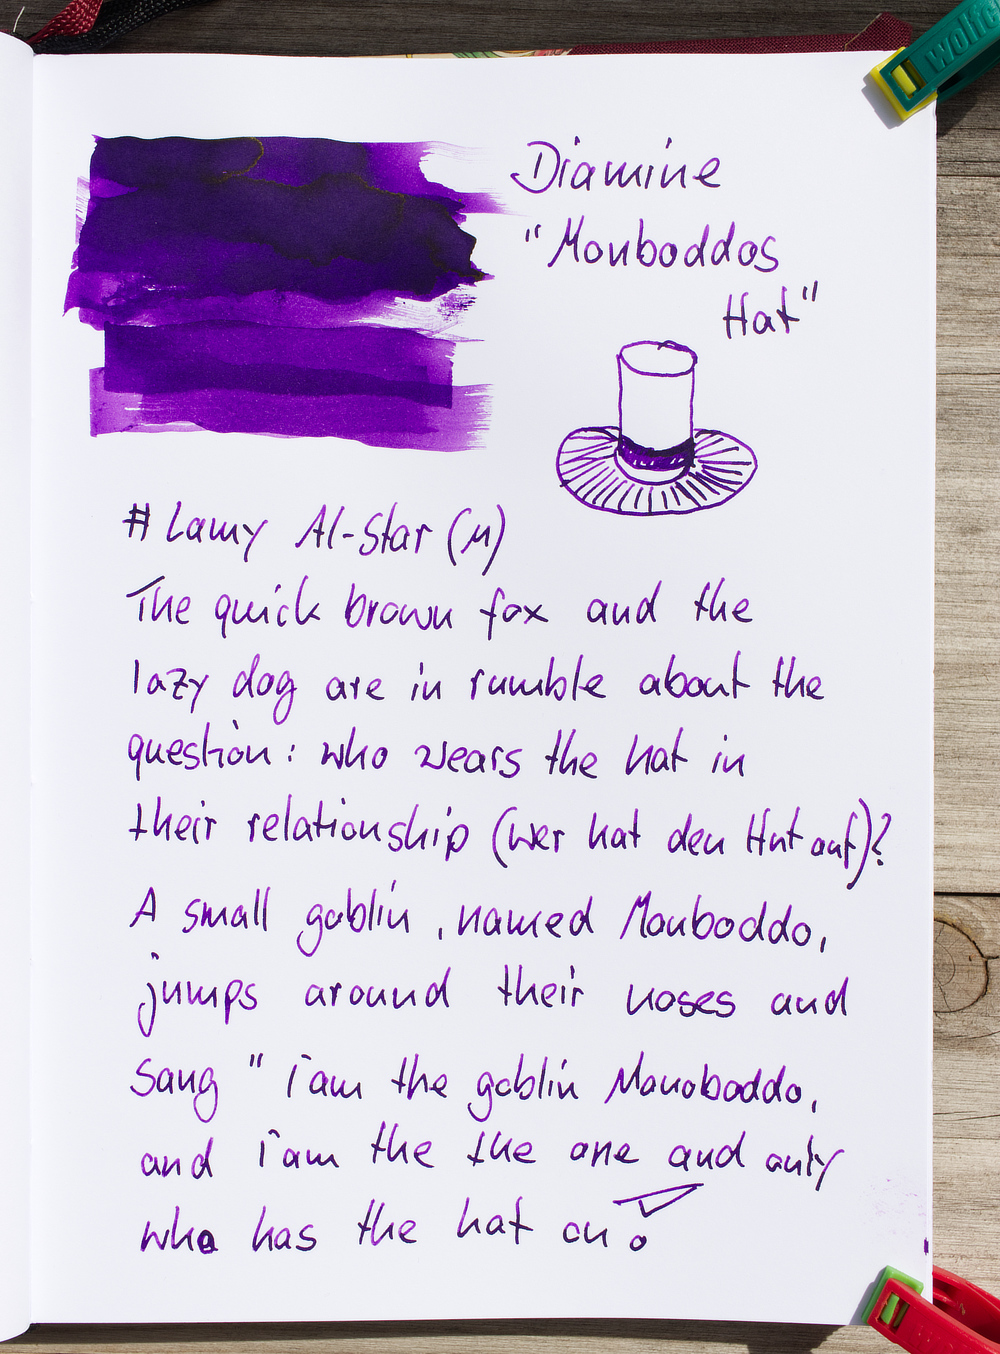 Diamine
"Monboddos
Hat"
# Lamy Al-Star (M)
The quick brown fox and the
lazy dog are in rumble about the
question: who wears the hat in
their relationship (wer hat den Hut auf)?
A small goblin, named Monboddo,
jumps around their noses and
sang "i am the goblin Monoboddo,
and i am the the one and only
who has the hat on!